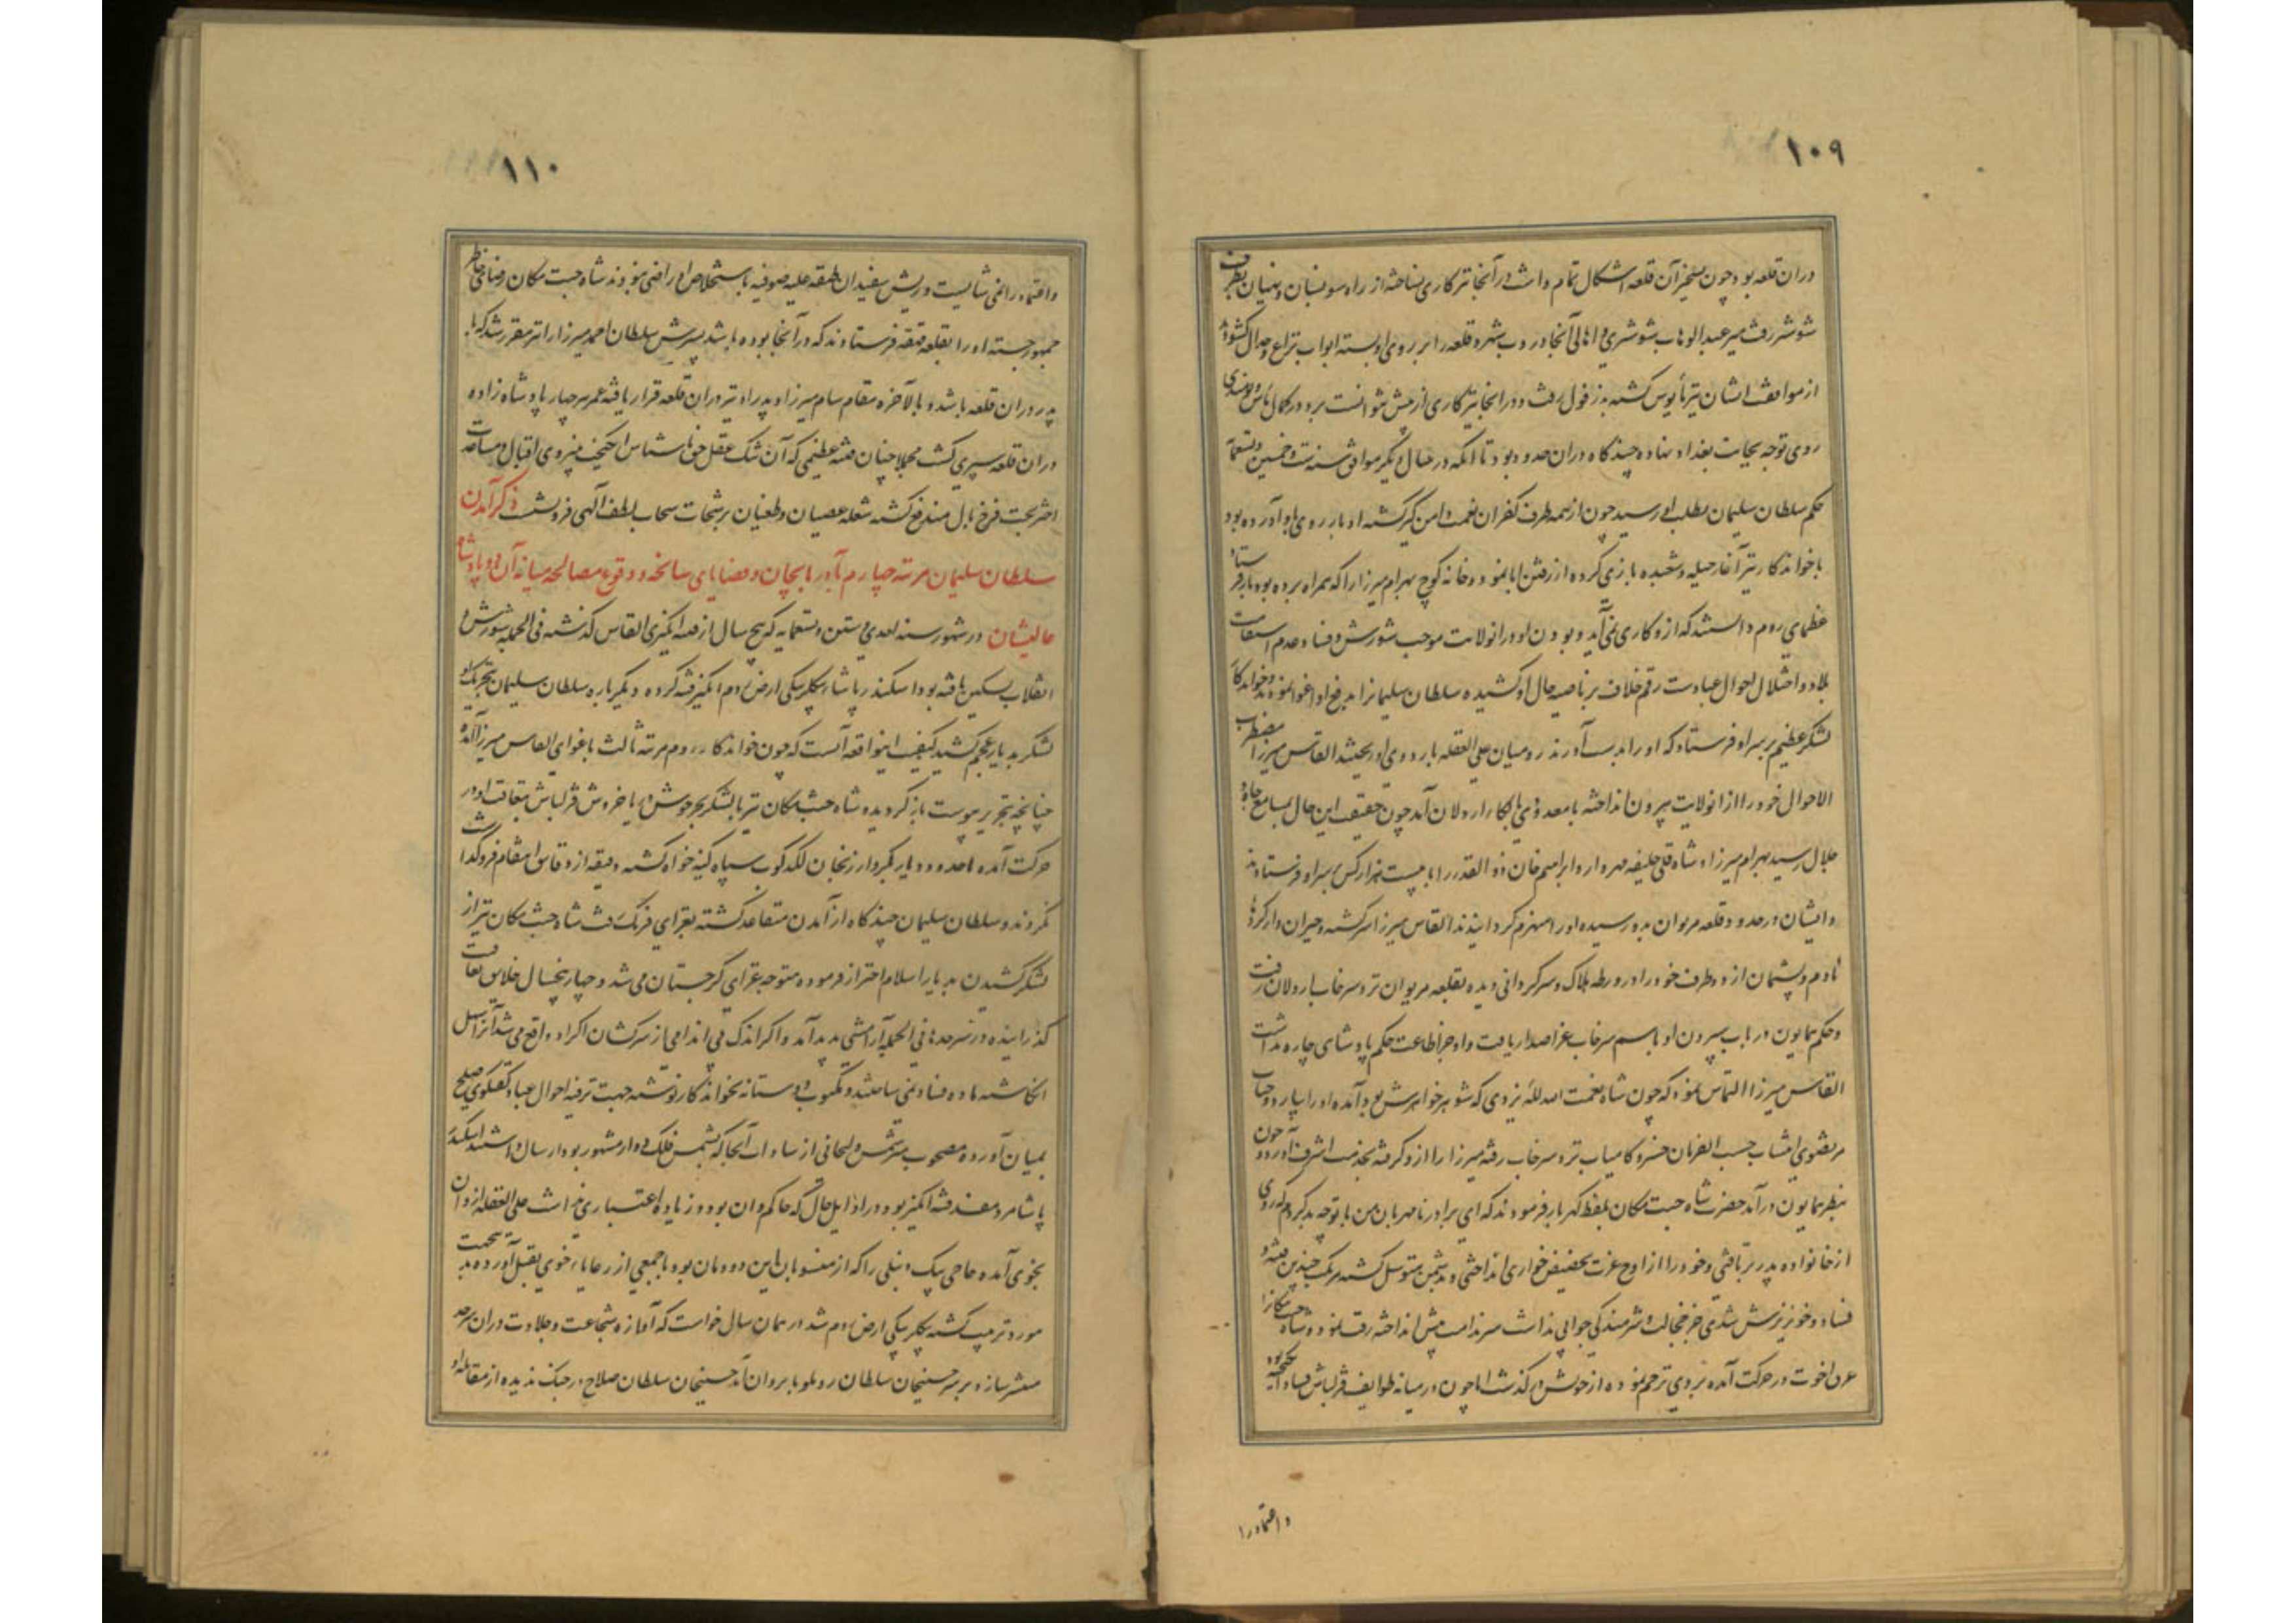 ۱۰۹
دران قلعه بود چون تسخیر آن قلعه اشکال تمام داشت در آنجا نیز کاری نساخته از راه بطرف
شوشتر رفت میر عبد الوهاب شوشتری و اهالی آنجا در و ب شهر و قلعه را بر روی او بسته ابواب نزاع و جدال کشوده
از موافقت ایشان نیز مأیوس کشته بدزفول رفت و در آنجا نیز کاری از پیش نتوانست برد در کمال یأس و نومیدی
روی توجه بجانب بغداد نهاده چند کاه دران حدود بود تا آنکه در سال دیگر موافق سنه ست و خمسین و تسعمایه
حکم سلطان سلیمان بطلب او رسید چون از همه طرف کفران نعمت دامن گیر گشته ادبار روی باو آورده بود
با خواندکار نیز آغاز حیله و شعبده بازی کرده از رفتن ابا نمود و خانه کوچ بهرام میرزا را که همراه برده بود باز فرستاد
عظمای روم دانستند که ازو کاری نمی‌آید و بودن او در انولایت موجب شورش و فساد و عدم استقامت
بلاد و اختلال احوال عباد است رقم خلاف بر ناصیه حال او کشیده سلطان سلیمانرا بدفع او اغوا نمودند و خواندکار
لشکر عظیم بر سر او فرستاد که او را بدست آورند رومیان علی الغفله بر اردوی او ریختند القاس میرزا مضطرب
الاحوال خود را از انولایت بیرون انداخته با معدودی بالکاء اردلان آمد چون حقیقت این حال بمسامع جاه و
جلال رسید بهرام میرزا و شاه قلی خلیفه مهردار و ابراهیم خان ذو القدر را با بیست هزار کس بر سر او فرستادند
و ایشان در حدود قلعه مریوان بدو رسیده او را منهزم کردانیدند القاس میرزا سرکشته و حیران و از کردها
نادم و پشیمان از دو طرف خود را در ورطه هلاک و سرکردانی دیده بقلعه مریوان نزد سرخاب اردلان رفت
و حکم همایون در باب سپردن او باسم سرخاب عز اصدار یافت و او جز اطاعت حکم پادشاهی چاره نداشت
القاس میرزا التماس نمود که چون شاه نعمت الله یزدی که شوهر خواهرش بود آمده او را بیارد و جناب
مرتضوی انتساب حسب الفرمان خسرو کامیاب نزد سرخاب رفته میرزا را ازو کرفته بخدمت اشرف آورد و چون
بنظر همایون درآمد حضرت شاه جنت مکان بلفظ کهربار فرمودند که ای برادر نامهربان من با تو چه بد کردم که روی
از خانواده پدر بر تافتی و خود را از اوج عزت بحضیض خواری انداختی و بدشمن متوسل کشته مرتکب چندین فتنه و
فساد و خونریزش شدی جز خجالت و شرمندکی جوابی نداشت سر ندامت پیش انداخته رقت نمود و شاه جنت مکانرا
عرق اخوت در حرکت آمده بر وی ترحم نموده از خونش در گذشت اما چون در میانه طوایف قزلباش فساد انگیخته بود
و اعتماد را
۱۱۰
و اعتماد را نمی شایست و ریش سفیدان طبقه علیه صوفیه باستخلاص او راضی نبودند شاه جنت مکان رضای خاطر
جمهور جسته او را بقلعه قهقهه فرستادند که در آنجا بوده باشد پسرش سلطان احمد میرزا را نیز مقرر شد که با
پدر دران قلعه باشد و بالآخره مقام سام میرزا و پدر او نیز دران قلعه قرار یافته عمر هر چهار پادشاه زاده
دران قلعه سپری کشت مجملا چنان فتنه عظیمی که آن تنک عقل حق ناشناس انگیخت بنیروی اقبال و مساعدت
اختر بخت فرخ فال مندفع کشته شعله عصیان و طغیان برشحات سحاب لطف الهی فرو نشست ذکر آمدن
سلطان سلیمان مرتبه چهارم بآذربایجان و قضایای سانحه و وقوع مصالحه میانه آن دو پادشاه
عالیشان در شهور سنه احدی و ستین و تسعمایه که پنج سال از فتنه انگیزی القاس گذشته فی الجمله شورش و
انقلاب تسکین یافته بود اسکندر پاشا بیکلربیکی ارض روم انگیز فتنه کرده دیگر باره سلطان سلیمان بتحریک او
لشکر بدیار عجم کشید کیفیت این واقعه آنست که چون خواندکار روم مرتبه ثالث باغوای القاس میرزا آمده
چنانچه بتحریر پیوست بازگردیده شاه جنت مکان نیز با لشکر بحر جوش دریا خروش قزلباش بتعاقب او در
حرکت آمده تا حدود دیار بکر و ارزنجان لکد کوب سپاه کینه خواه کشته دقیقه از دقایق انتقام فرو گذاشت
نکردند و سلطان سلیمان چند کاه از آمدن متقاعد کشته بغزای فرنک رفت شاه جنت مکان نیز از
لشکر کشیدن بدیار اسلام احتراز فرموده متوجه غزای گرجستان می شد و چهار پنجسال خلایق بفراغت
گذرانیده در سرحدها فی الجمله آرامشی پدید آمد و اکر اندک بی اندامی از سرکشان اکراد واقع می شد آنرا سهل
انگاشته ماده فساد نمی ساختند و مکتوب دوستانه بخواندکار نوشته جهت ترفیه احوال عباد گفتگوی صلح
بمیان آورده مصحوب شمس دلیجانی از سادات آنجا که بشمس فلک دوار مشهور بود ارسال داشتند اسکندر
پاشا مرد مفسد فتنه انگیز بود در اوایل حال که حاکم وان بود و زیاده اعتباری نداشت علی الغفله از وان
بخوی آمده حاجی بیک دنبلی را که از منسوبان این دودمان بود با جمعی از رعایاء خوی بقتل آورده بدینجهت
مورد تربیت کشته بیکلربیکی ارض روم شد در همان سال خواست که آوازه شجاعت و جلادت دران سرحد
منتشر سازد بر سر حسینخان سلطان روملو بایروان آمد حسینخان سلطان صلاح در جنک ندیده از مقابله او